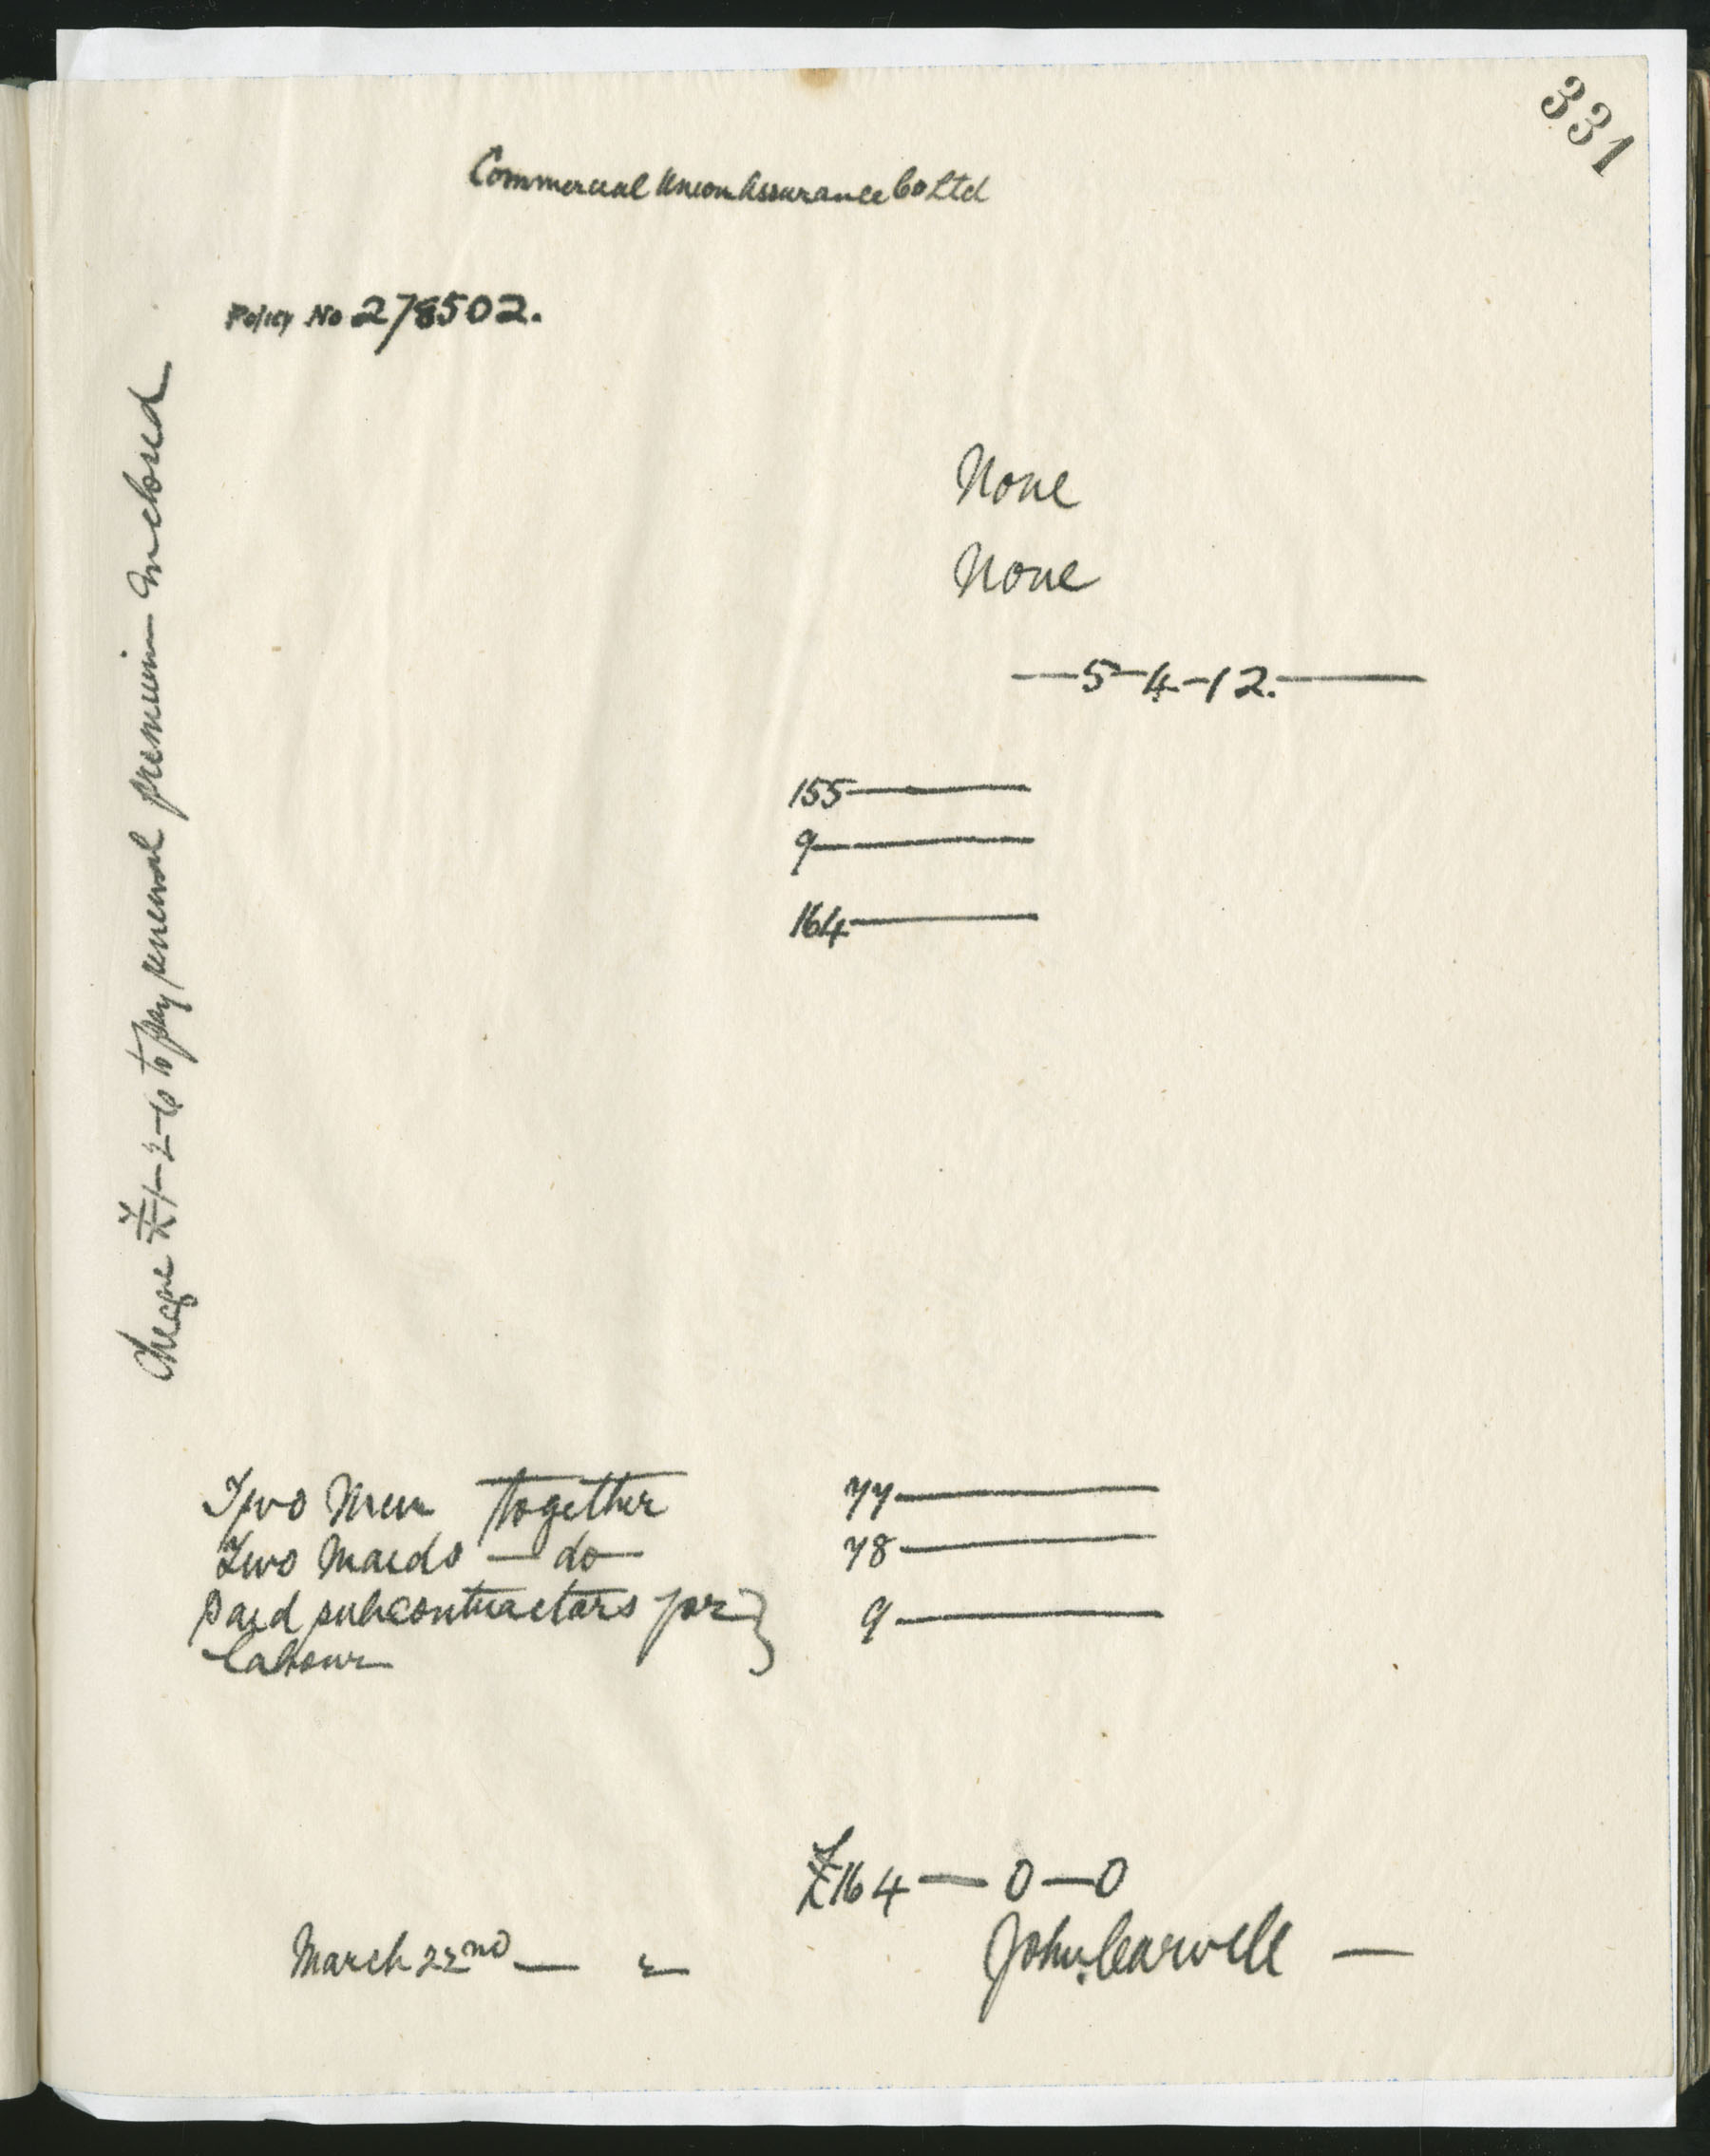 331
Commercial Union Assurance Co Ltd
Policy No 278502.
None
None
—5-4-12.—
155—
9—
164—
Cheque £1-2-6 to pay renewal premium Enclosed
Two Men together 77—
Two Maids — do — 78—
Paid subcontractors for } 9—
labour
£164 — 0 — 0
March 22nd — 2 —
John Carvell —